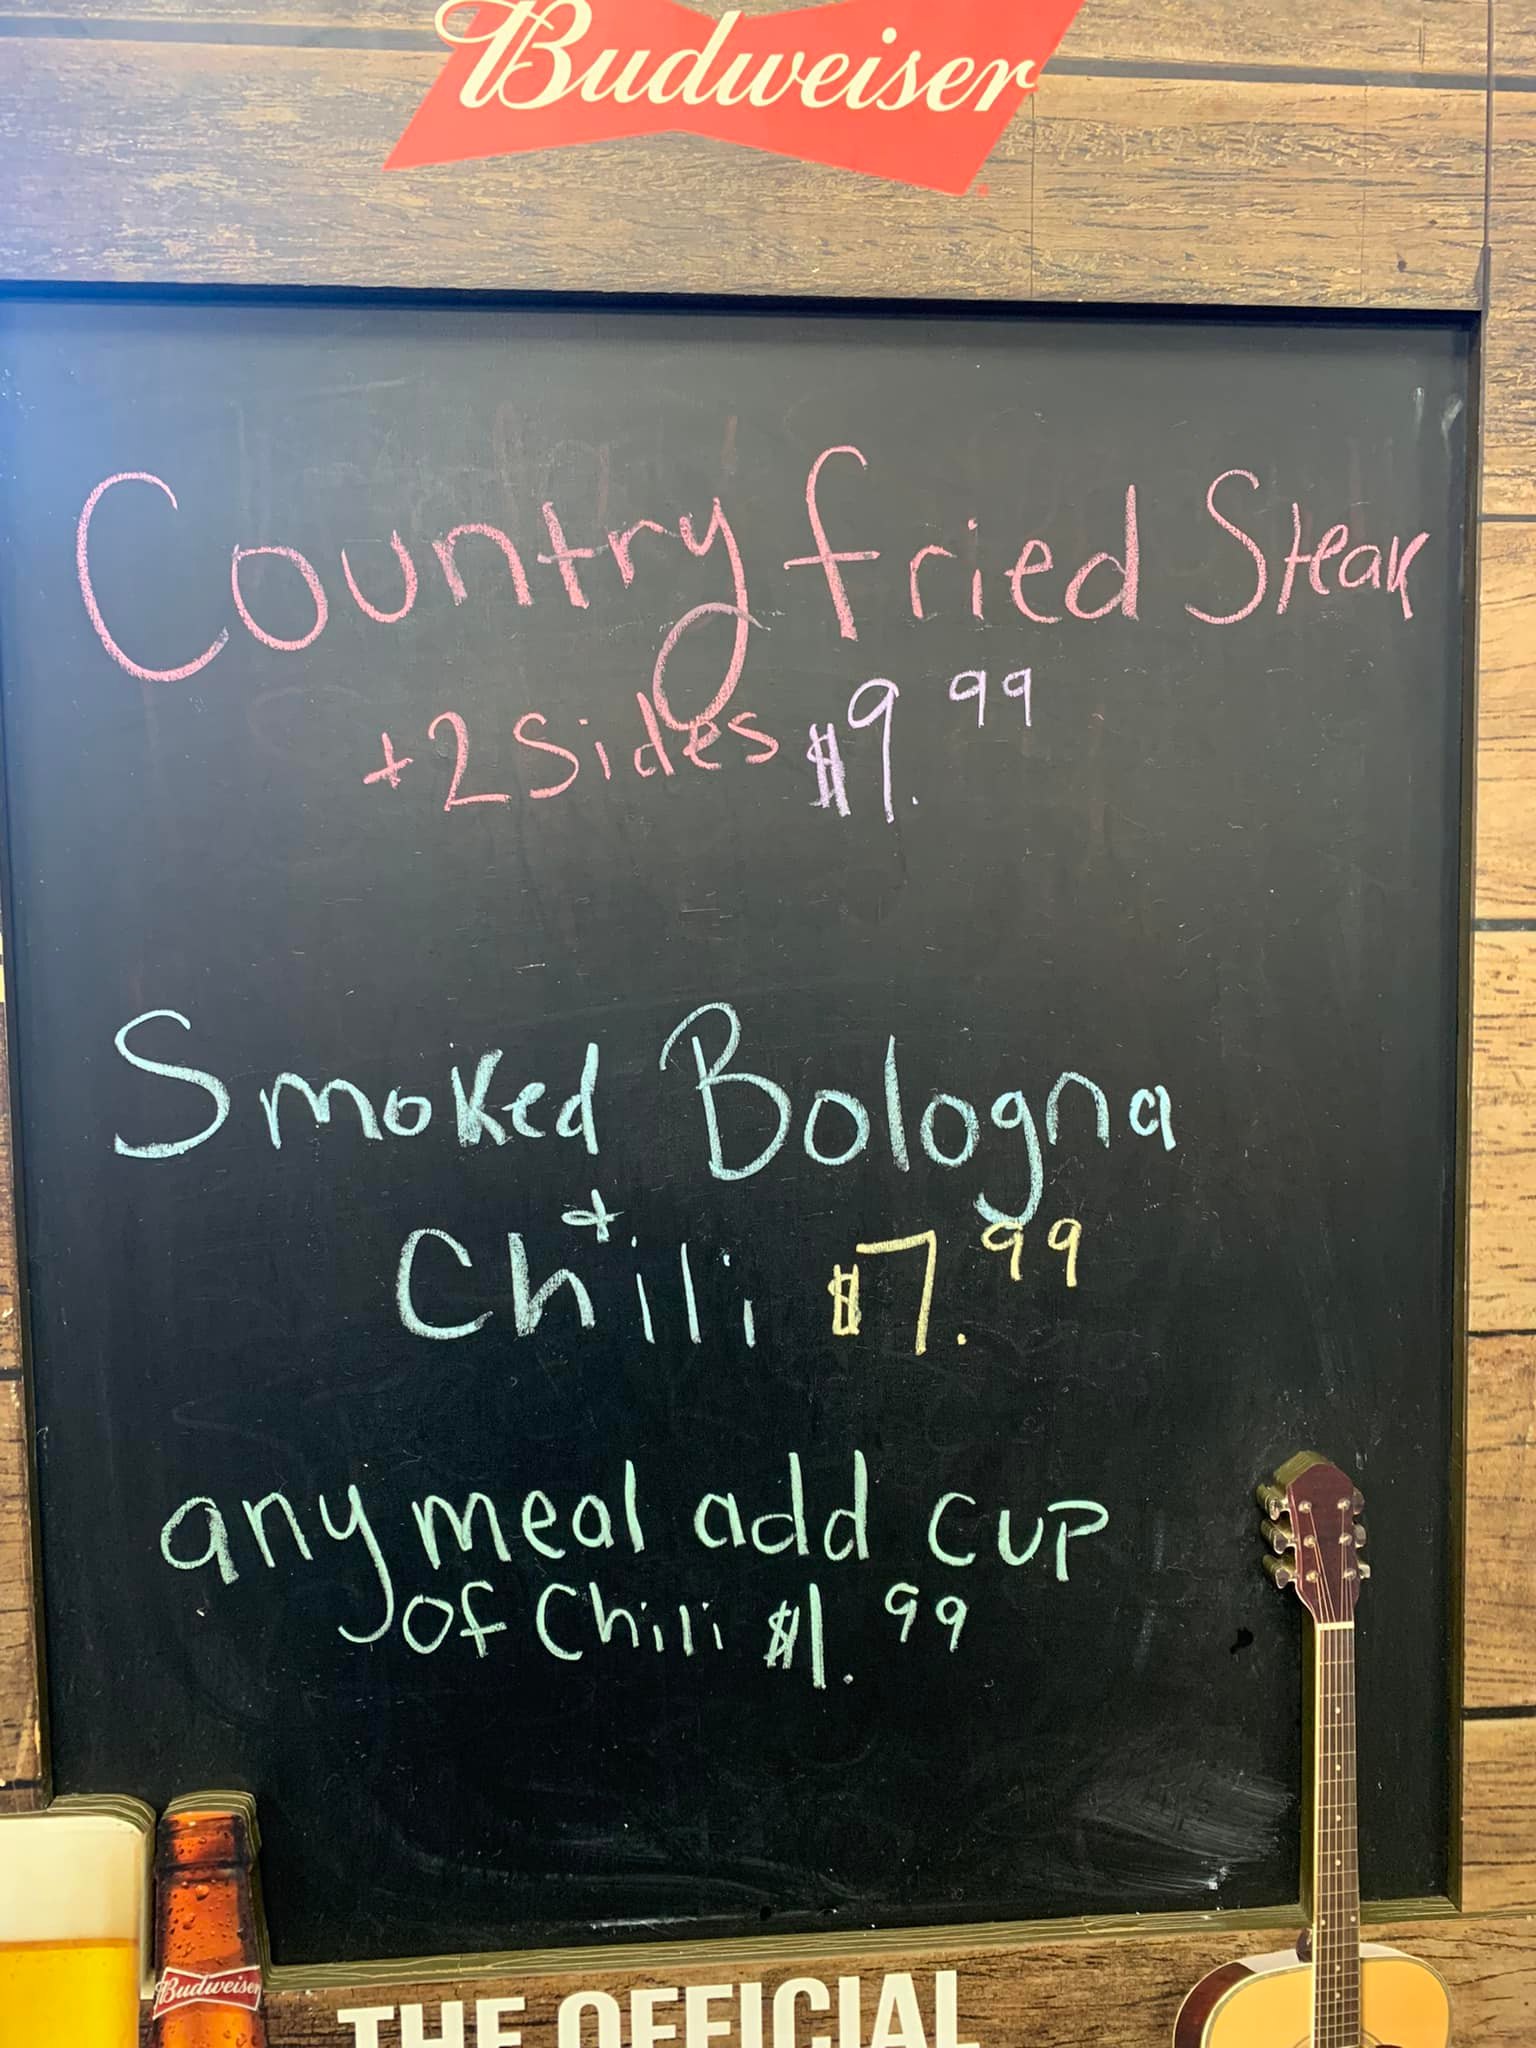 Budweiser
Country fried Steak
+2 Sides $9.99
Smoked Bologna
+
Chili $7.99
any meal add cup
of Chili $1.99
Budweiser
THE OFFICIAL